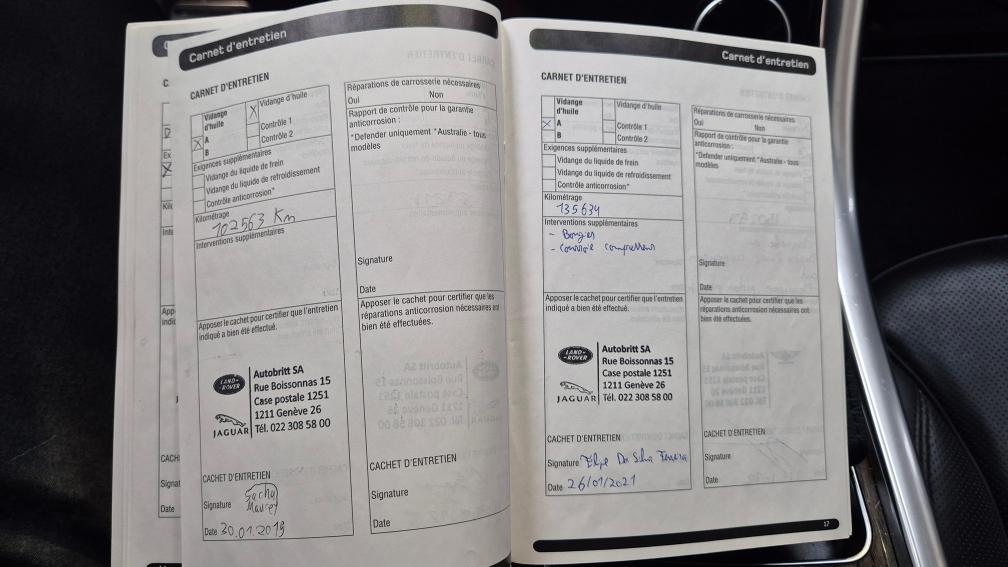 Carnet d'entretien
CARNET D'ENTRETIEN
Vidange d'huile
X Vidange d'huile
X A
B
Contrôle 1
Contrôle 2
Exigences supplémentaires
Vidange du liquide de frein
Vidange du liquide de refroidissement
Contrôle anticorrosion*
Kilométrage
102563 Km
Interventions supplémentaires
Apposer le cachet pour certifier que l'entretien
indiqué a bien été effectué.
LAND-ROVER
JAGUAR
Autobritt SA
Rue Boissonnas 15
Case postale 1251
1211 Genève 26
Tél. 022 308 58 00
CACHET D'ENTRETIEN
Signature Sacha
Maurey
Date 30.01.2019
Réparations de carrosserie nécessaires
Oui Non
Rapport de contrôle pour la garantie
anticorrosion :
*Defender uniquement *Australie - tous
modèles
Signature
Date
Apposer le cachet pour certifier que les
réparations anticorrosion nécessaires ont
bien été effectuées.
CACHET D'ENTRETIEN
Signature
Date
Carnet d'entretien
CARNET D'ENTRETIEN
Vidange
d'huile
Vidange d'huile
X A
B
Contrôle 1
Contrôle 2
Exigences supplémentaires
Vidange du liquide de frein
Vidange du liquide de refroidissement
Contrôle anticorrosion*
Kilométrage
135634
Interventions supplémentaires
- Bougies
- courroie compresseur
Apposer le cachet pour certifier que l'entretien
indiqué a bien été effectué.
LAND-ROVER
JAGUAR
Autobritt SA
Rue Boissonnas 15
Case postale 1251
1211 Genève 26
Tél. 022 308 58 00
CACHET D'ENTRETIEN
Signature Filipe Da Silva Ferreira
Date 26/01/2021
Réparations de carrosserie nécessaires
Oui Non
Rapport de contrôle pour la garantie
anticorrosion :
*Defender uniquement *Australie - tous
modèles
Signature
Date
Apposer le cachet pour certifier que les
réparations anticorrosion nécessaires ont
bien été effectuées.
CACHET D'ENTRETIEN
Signature
Date
17